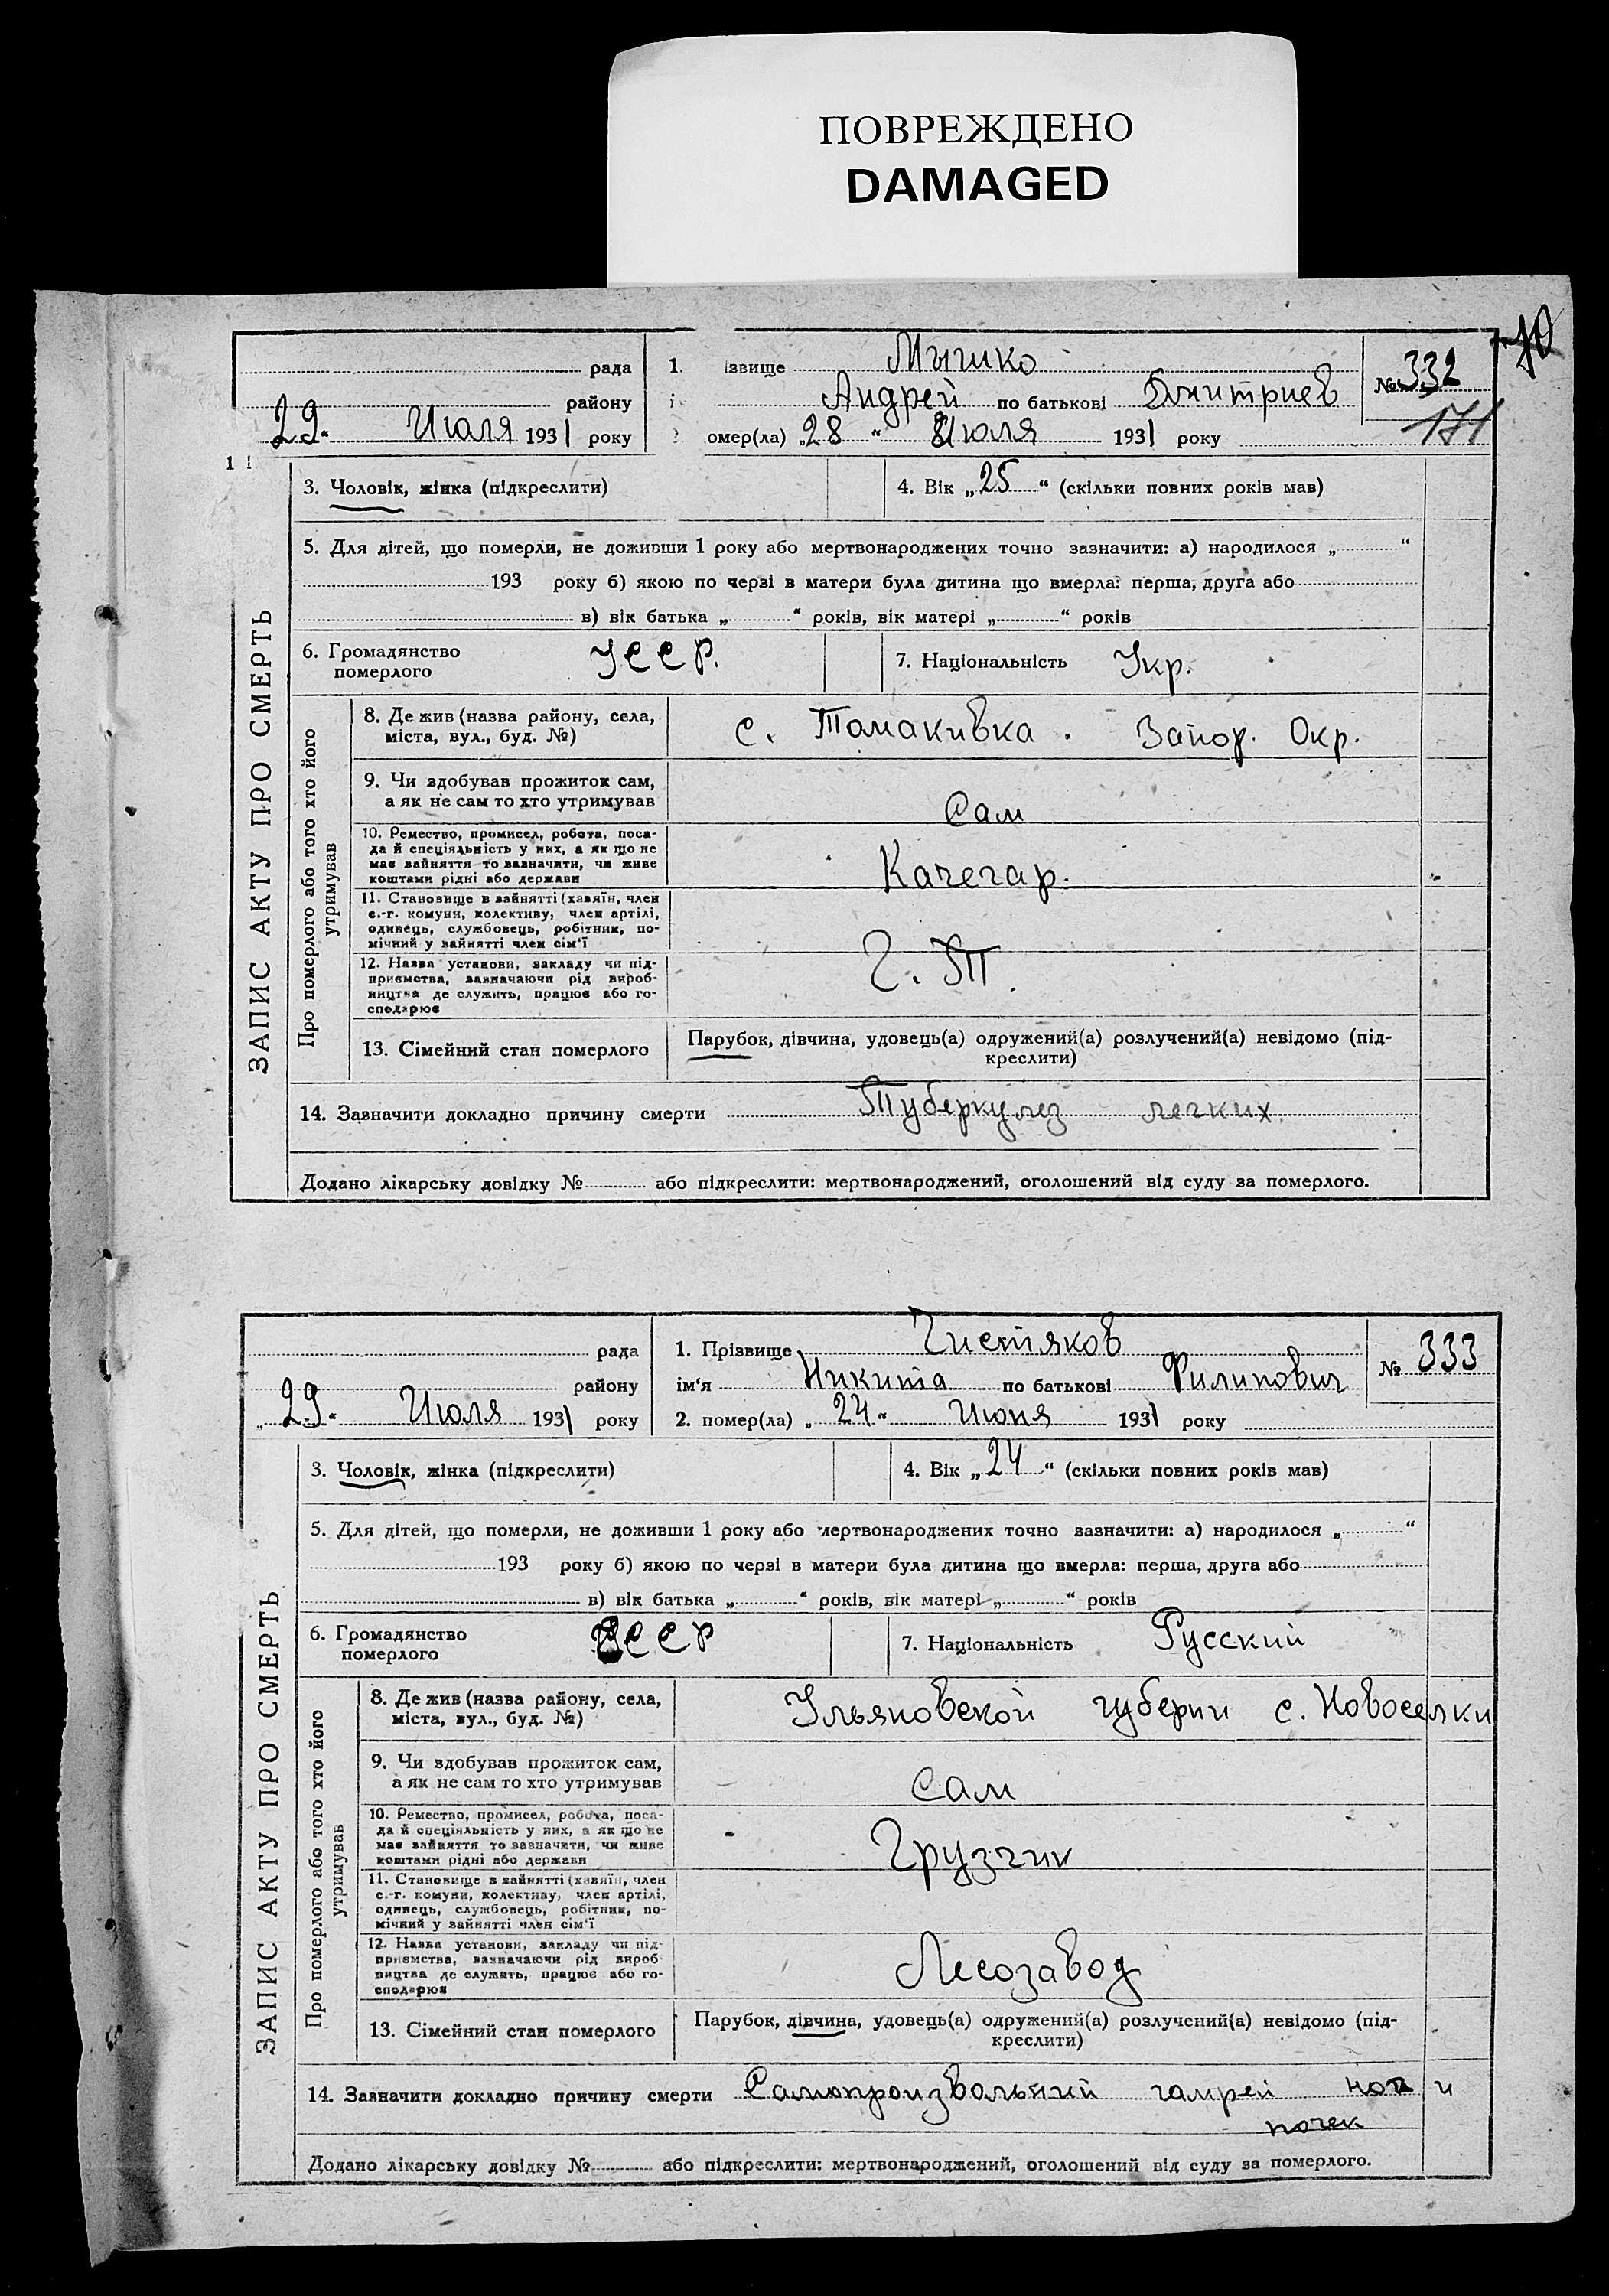 ПОВРЕЖДЕНО
DAMAGED
70
рада
1. ізвище Мышко
№ 332
району
і Андрей по батькові Дмитриев
29 Июля 1931 року
омер(ла) „28“ Июля 1931 року
171
3. Чоловік, жінка (підкреслити)
4. Вік „25“ (скільки повних років мав)
5. Для дітей, що померли, не доживши 1 року або мертвонароджених точно зазначити: а) народилося „ “
193 року б) якою по черзі в матери була дитина що вмерла: перша, друга або
в) вік батька „ “ років, вік матері „ “ років
ЗАПИС АКТУ ПРО СМЕРТЬ
6. Громадянство
померлого
УССР.
7. Національність Укр.
Про померлого або того хто його
утримував
8. Де жив (назва району, села,
міста, вул., буд. №)
с. Томакивка. Запор. Окр.
9. Чи здобував прожиток сам,
а як не сам то хто утримував
Сам
10. Ремество, промисел, робота, поса-
да й спеціяльність у них, а як що не
має зайняття то зазначити, чи живе
коштами рідні або держави
Качегар.
11. Становище в зайнятті (хазяїн, член
с.-г. комуни, колективу, член артілі,
одинець, службовець, робітник, по-
мічний у зайнятті член сім'ї
12. Назва установи, закладу чи під-
приємства, зазначаючи рід вироб-
ництва де служить, працює або го-
сподарює
13. Сімейний стан померлого
Парубок, дівчина, удовець(а) одружений(а) розлучений(а) невідомо (під-
креслити)
14. Зазначити докладно причину смерти Туберкулез легких.
Додано лікарську довідку № або підкреслити: мертвонароджений, оголошений від суду за померлого.
рада
1. Прізвище Чистяков
№ 333
району
ім'я Никита по батькові Филипович
„29“ Июля 1931 року
2. помер(ла) „24“ Июня 1931 року
3. Чоловік, жінка (підкреслити)
4. Вік „24“ (скільки повних років мав)
5. Для дітей, що померли, не доживши 1 року або мертвонароджених точно зазначити: а) народилося „ “
193 року б) якою по черзі в матери була дитина що вмерла: перша, друга або
в) вік батька „ “ років, вік матері „ “ років
ЗАПИС АКТУ ПРО СМЕРТЬ
6. Громадянство
померлого
УССР
7. Національність Русский
Про померлого або того хто його
утримував
8. Де жив (назва району, села,
міста, вул., буд. №)
Ульяновской губерни с. Новоселки
9. Чи здобував прожиток сам,
а як не сам то хто утримував
Сам
10. Ремество, промисел, робота, поса-
да й спеціяльність у них, а як що не
має зайняття то зазначити, чи живе
коштами рідні або держави
Грузчик
11. Становище в зайнятті (хазяїн, член
с.-г. комуни, колективу, член артілі,
одинець, службовець, робітник, по-
мічний у зайнятті член сім'ї
12. Назва установи, закладу чи під-
приємства, зазначаючи рід вироб-
ництва де служить, працює або го-
сподарює
Лесозавод
13. Сімейний стан померлого
Парубок, дівчина, удовець(а) одружений(а) розлучений(а) невідомо (під-
креслити)
14. Зазначити докладно причину смерти Самопроизвольний и
почек
Додано лікарську довідку № або підкреслити: мертвонароджений, оголошений від суду за померлого.